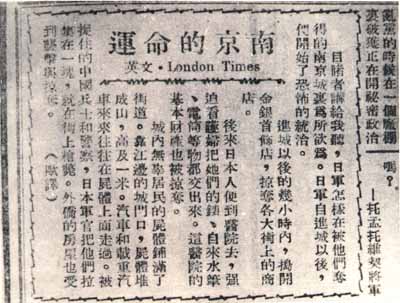 亂黨的時候在一個
裏破獲正在開祕密政治
嗎？
—托孟托維契將軍
南京的命運
英文・London Times
目睹者講給我聽，日軍怎樣在被他們奪
得的南京城裏爲所欲爲。日軍自進城以後，
們開始了恐怖的統治。
進城以後的幾小時內，搗開
金銀首飾店，掠奪各大街上的商
店。
後來日本人便到醫院去，强
迫看護婦把她們的錶、自來水筆
、電筒等物都交出來。這醫院的
基本財產也被掠奪。
城內無辜居民的屍體鋪滿了
街道。靠江邊的城門口，屍體堆
成山，高及一米。汽車和載重汽
車來來往往在屍體上面走過。被
捉住的中國兵士和警察，日本軍官把他們拉
集在一塊，就在街上槍斃。外僑的房屋也受
到襲擊與掠奪。